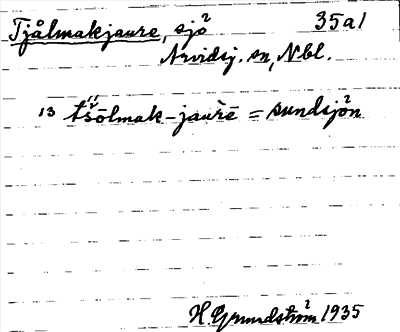 Tjålmakjaure, sjö 35a1
Arvidsj. sn, Nbl.
13 tšōlmak-jaurē = sundsjön
H. Grundström 1935